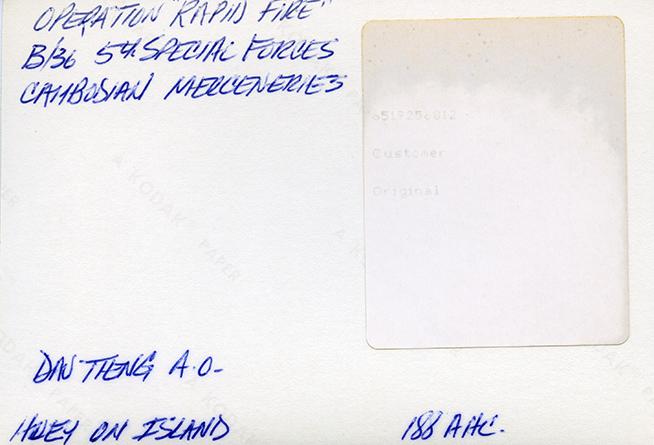 OPERATION "RAPID FIRE"
B/36 5th SPECIAL FORCES
CAMBODIAN MERCENERIES
6519256812
Customer
Original
A KODAK PAPER
A KODAK
DAU TIENG A.O-
HUEY ON ISLAND
188 AHC.